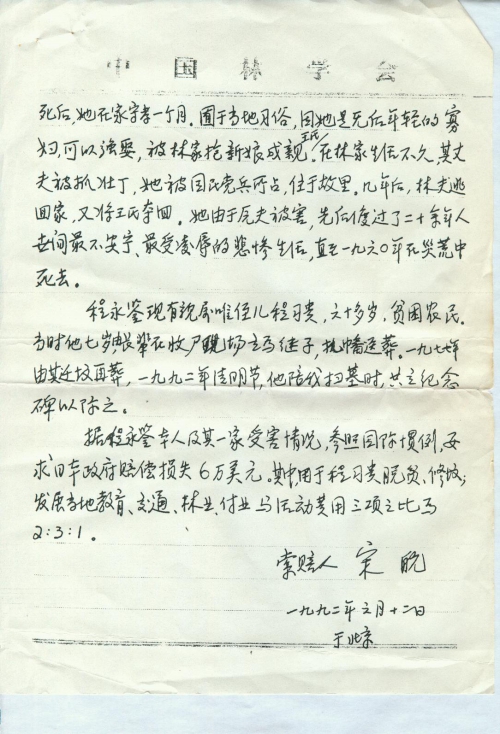 中国林学会
死后,她在家守孝一个月。囿于当地习俗,因她是无后年轻的寡
妇,可以强娶,被林家抢新娘成亲。王氏在林家生活不久,其丈
夫被抓壮丁,她被国民党兵所占,住于故里。几年后,林夫逃
回家,又将王氏夺回。她由于瓦夫被害,先后度过了二十余年人
世间最不安宁、最受凌辱的悲惨生活,直至一九六0年在灾荒中
死去。
程永鉴现有亲属唯侄儿程习贵,六十多岁,贫困农民。
当时他七岁,由长辈在收尸现场立为继子,执幡送葬。一九七七年
由其迁坟再葬,一九九二年清明节,他陪我扫墓时,共立纪念
碑以陈之。
据程永鉴本人及其一家受害情况,参照国际惯例,要
求日本政府赔偿损失6万美元。其中用于程习贵脱贫、修坟;
发展当地教育、交通、林业、付业与活动费用三项之比为
2:3:1。
索赔人 宋
一九九二年六月十二日
于北京